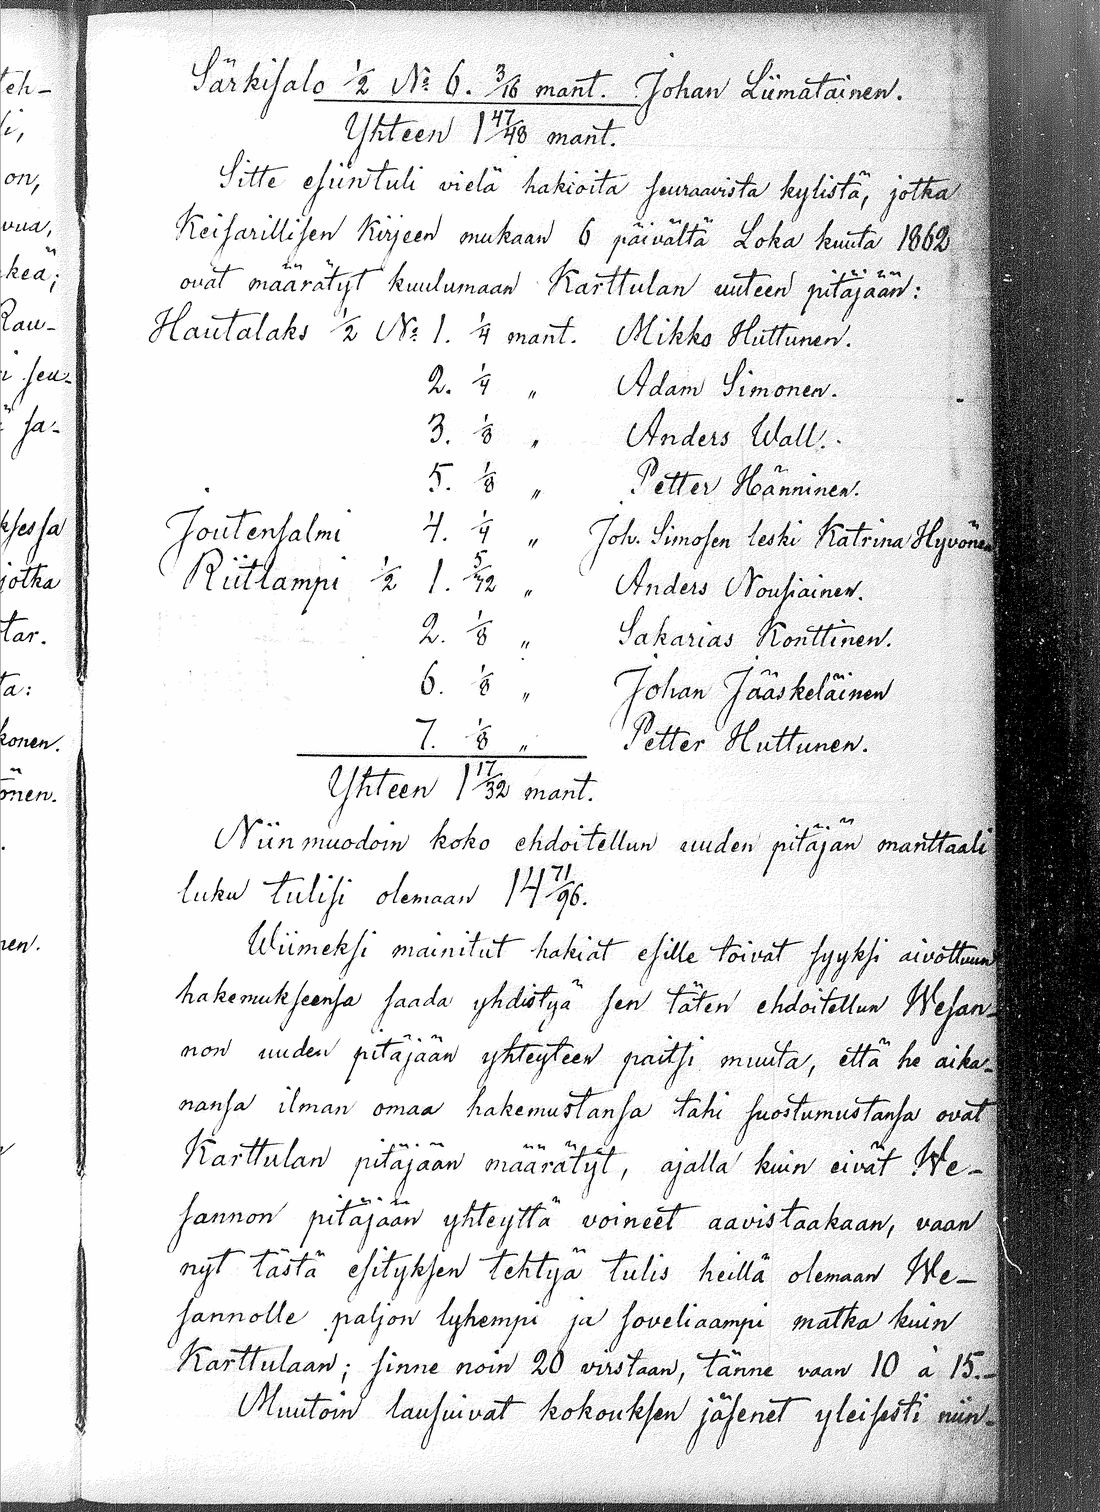 Särkisalo 1/2 No 6. 3/16 mant. Johan Liimatainen.
Yhteen 1 47/48 mant.
Sitte esiintuli vielä hakioita seuraavista kylistä, jotka
Keisarillisen Kirjeen mukaan 6 päivältä Loka kuuta 1862
ovat määrätyt kuulumaan Karttulan uuteen pitäjään:
Hautalaks 1/2 No 1. 1/4 mant. Mikko Huttunen.
2. 1/4 " Adam Simonen.
3. 1/8 " Anders Wall.
5. 1/8 " Petter Hänninen.
Joutensalmi 4. 1/4 " Joh. Simosen leski Katrina Hyvönen
Riitlampi 1/2 1. 5/32 " Anders Nousiainen.
2. 1/8 " Sakarias Konttinen.
6. 1/8 " Johan Jääskeläinen
7. 1/8 " Petter Huttunen.
Yhteen 1 17/32 mant.
Niinmuodoin koko ehdoitellun uuden pitäjän manttaali
luku tulisi olemaan 14 71/96.
Wiimeksi mainitut hakiat esille toivat syyksi aivottuun
hakemukseensa saada yhdistyä sen täten ehdoitellun Wesan-
non uuden pitäjään yhteyteen paitsi muuta, että he aika-
nansa ilman omaa hakemustansa tahi suostumustansa ovat
Karttulan pitäjään määrätyt, ajalla kuin eivät We-
sannon pitäjään yhteyttä voineet aavistaakaan, vaan
nyt tästä esityksen tehtyä tulis heillä olemaan We-
sannolle paljon lyhempi ja soveliaampi matka kuin
Karttulaan; sinne noin 20 virstaan, tänne vaan 10 à 15.-
Muutoin lausuivat kokouksen jäsenet yleisesti niin-